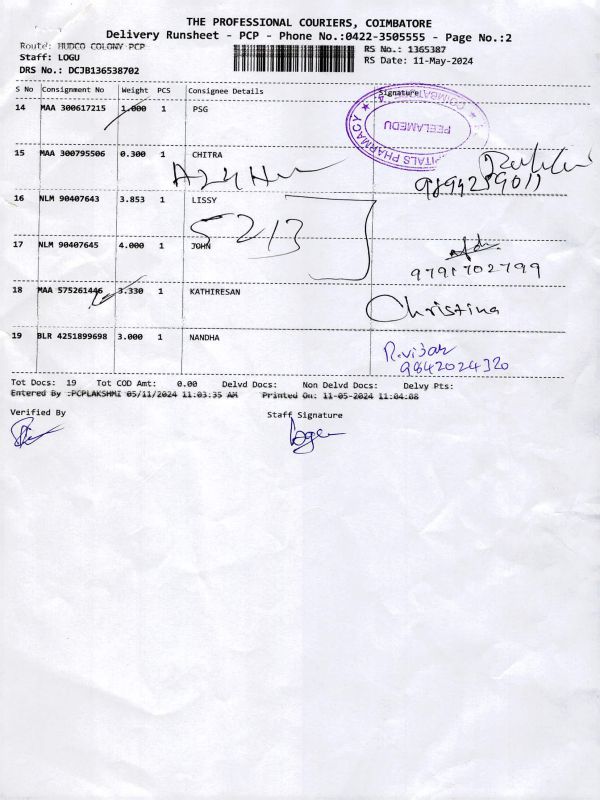 THE PROFESSIONAL COURIERS, COIMBATORE
Delivery Runsheet - PCP - Phone No.:0422-3505555 - Page No.:2
Route: HUDCO COLONY PCP
RS No.: 1365387
Staff: LOGU
RS Date: 11-May-2024
DRS No.: DCJB136538702
S No Consignment No Weight PCS Consignee Details Signature
14 MAA 300617215 1.000 1 PSG
PEELAMEDU
PITALS PHARMACY
15 MAA 300795506 0.300 1 CHITRA
9894259011
16 NLM 90407643 3.853 1 LISSY
5213
17 NLM 90407645 4.000 1 JOHN
9791702799
18 MAA 575261446 3.330 1 KATHIRESAN
Christina
19 BLR 4251899698 3.000 1 NANDHA
9842024320
Tot Docs: 19 Tot COD Amt: 0.00 Delvd Docs: Non Delvd Docs: Delvy Pts:
Entered By :PCPLAKSHMI 05/11/2024 11:03:35 AM Printed On: 11-05-2024 11:04:08
Verified By
Staff Signature